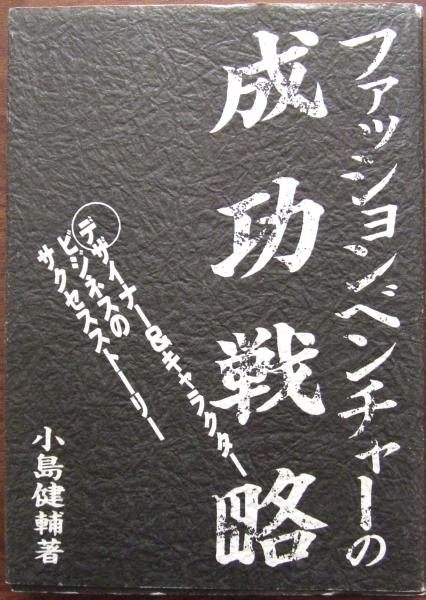 ファッションベンチャーの
成功戦略
デザイナー&キャラクター
ビジネスの
サクセスストーリー
小島健輔著